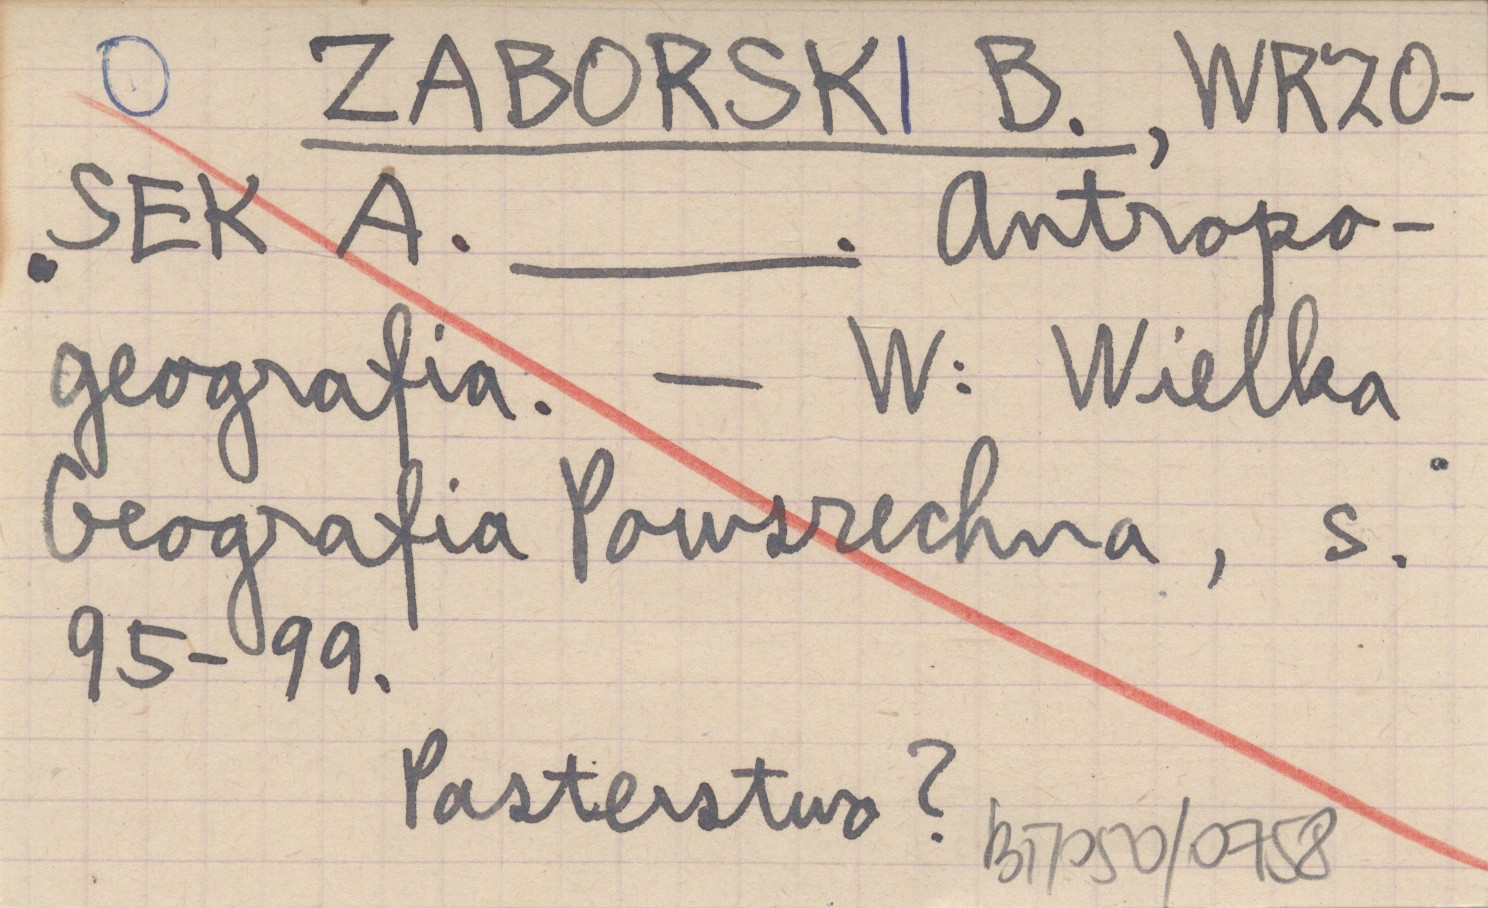 O ZABORSKI B., WRZO-
SEK A. ______. Antropo-
geografia. — W: Wielka
Geografia Powszechna, s.
95-99.
Pasterstwo?
BT/050/0758